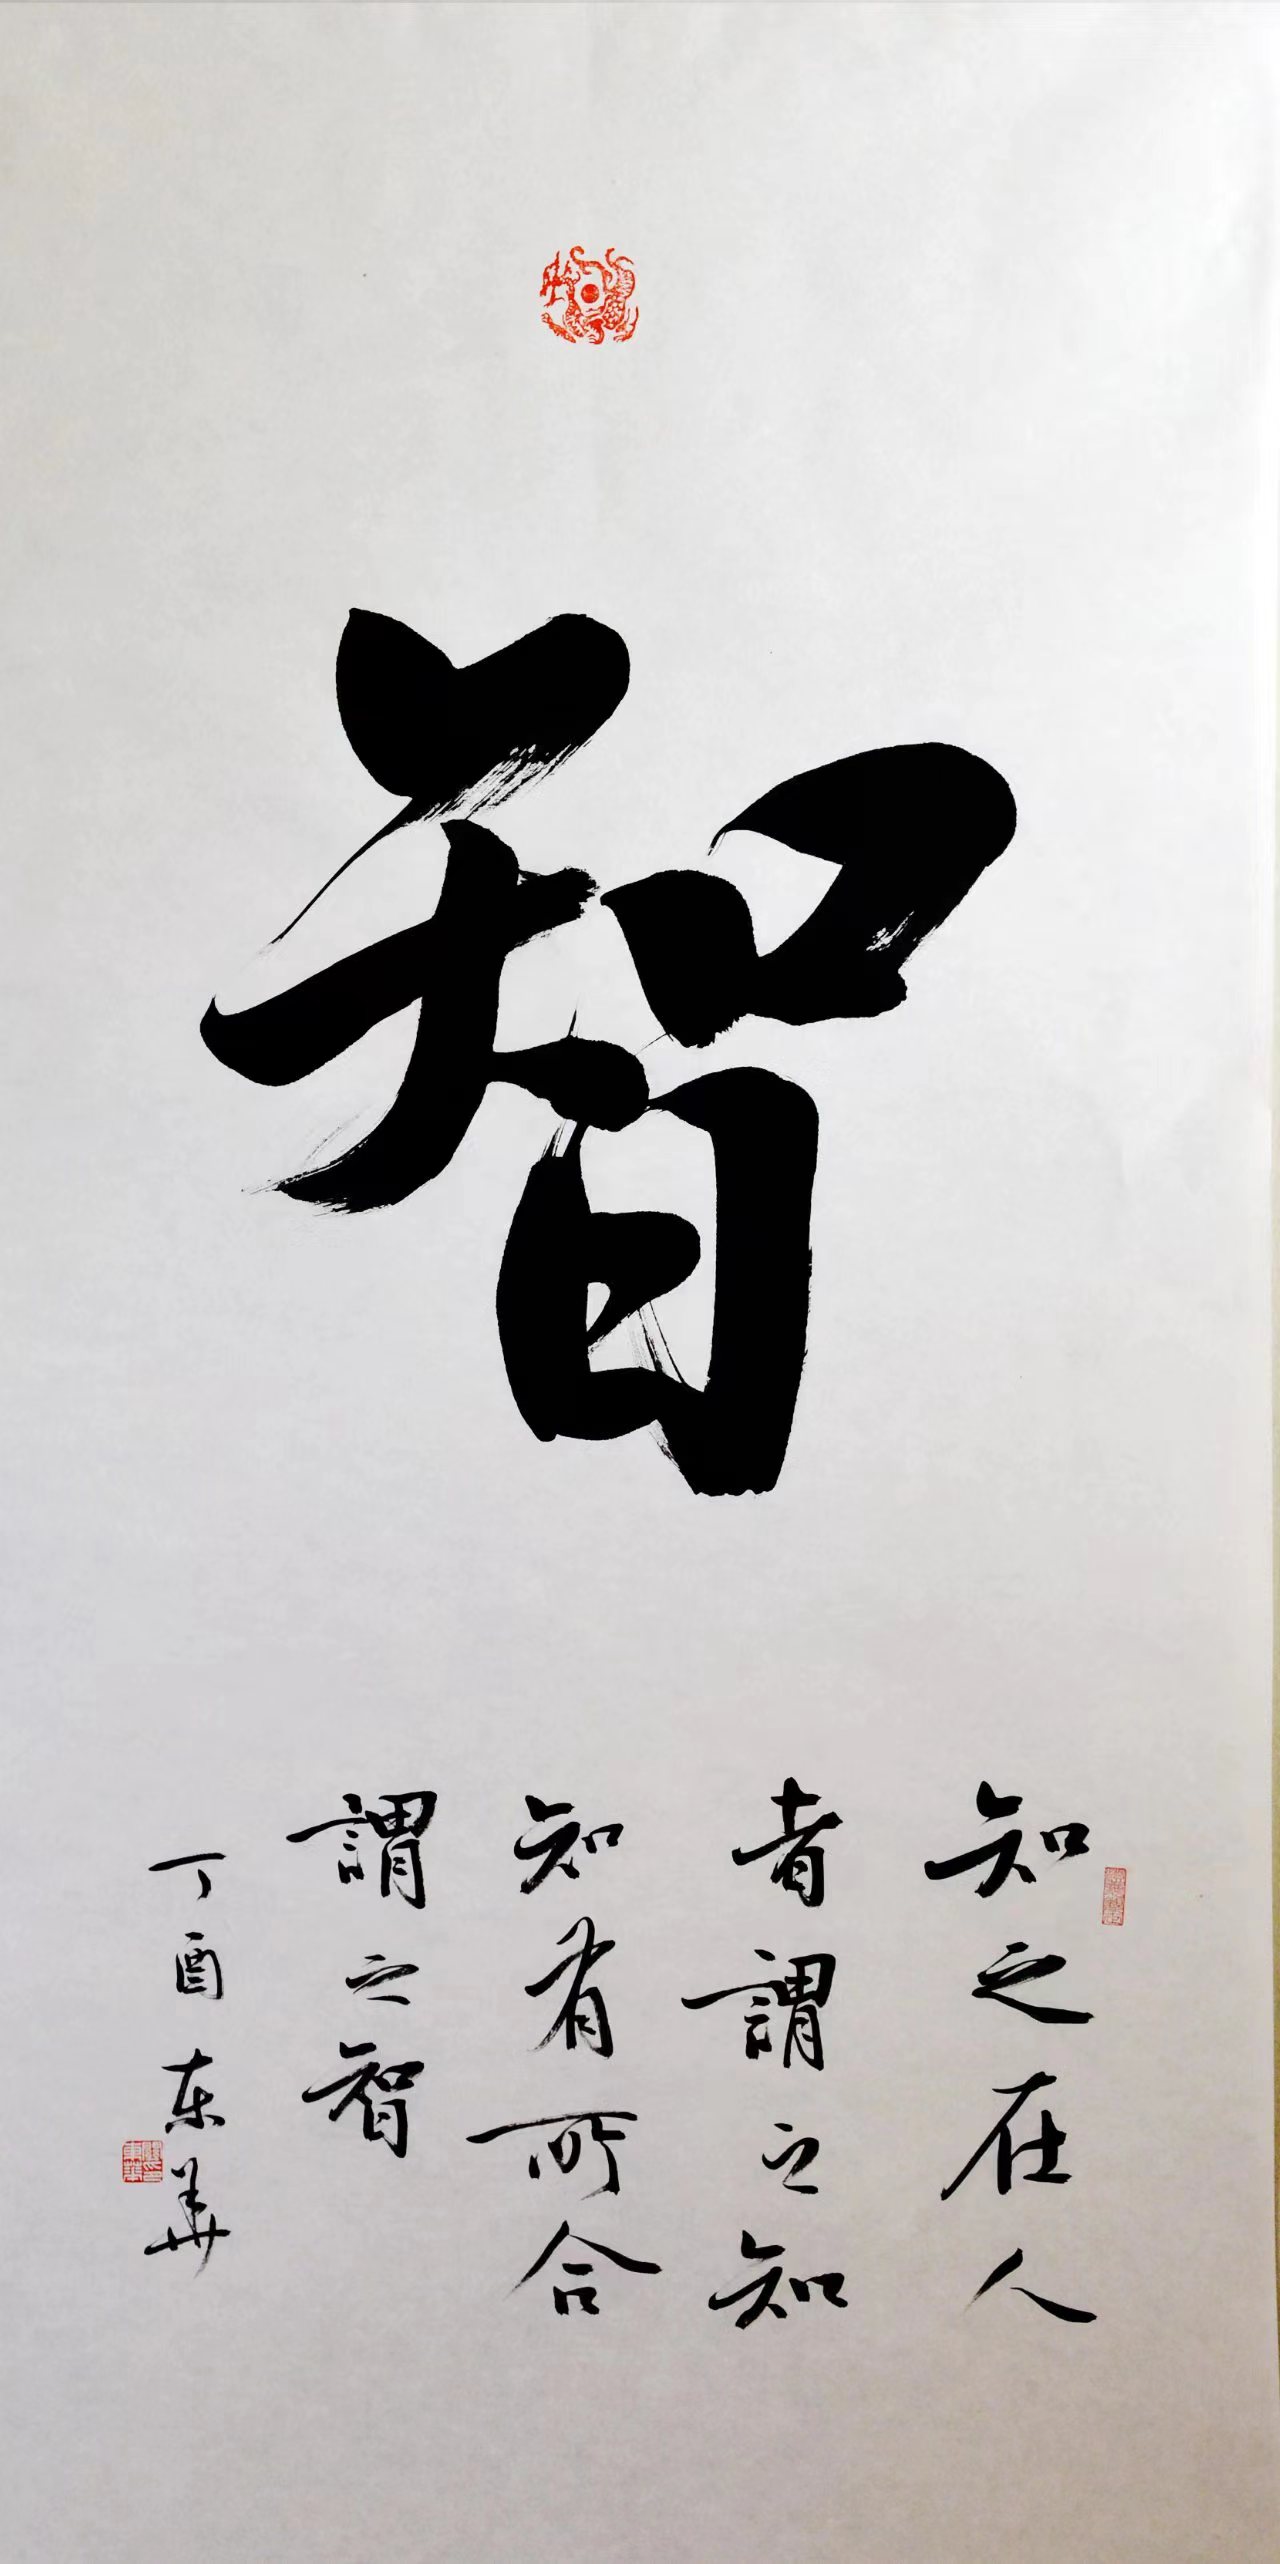 智
知之在人
者謂之知
知有所合
謂之智
丁酉东華